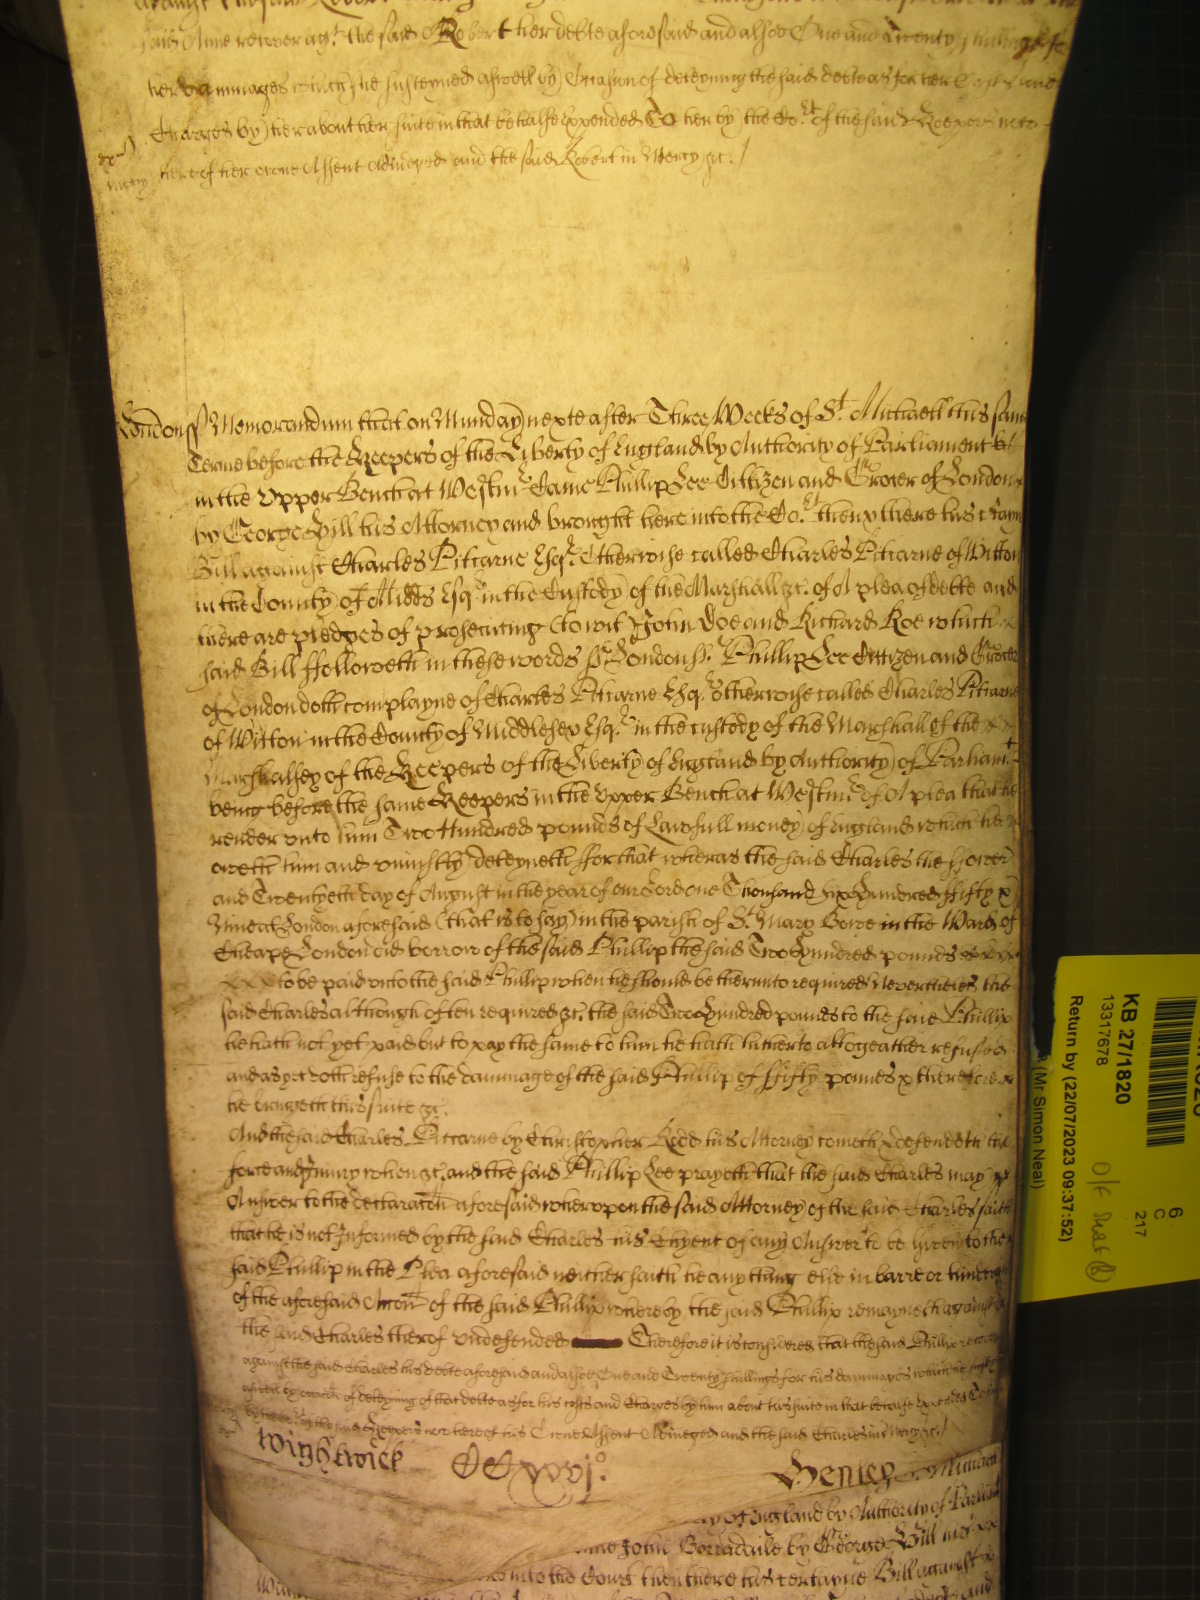 said Anne recover ag.t the said Robert her debte aforesaid and alsoe One and Twenty shillings for
her dammages which she susteyned aswell by Occasion of deteyning the said debte as for her Costs and
Charges by her about her suite in that behalfe Expended To her by the Co.rt of the said Keepers
here of her owne Assent Adiudged and the said Robert in Mercy &c. /
mercy
London ss Memorandum that on Munday nexte after Three Weeks of S.t Michaell this same
Terme before the Keepers of the Liberty of England by Authority of Parliament
in the Upper Bench at Westm.r Came Phillip Lee Cittizen and Grocer of London
by George Hill his Attorney and brought here into the Co.rt then & there his
Bill against Charles Pitcarne Esq.r Otherwise called Charles Pitcarne of Witton
in the County of Midds Esq.r in the Custody of the Marshall &c. of A plea of debte and
there are pledges of prosecuting to wit John Doe and Richard Roe which
said Bill ffolloweth in these words ss London ss. Phillip Lee Cittizen and Grocer
of London doth complayne of Charles Pitcarne Esq.r otherwise called Charles Pitcarne
of Witton in the County of Middlesex Esq.r in the custody of the Marshall of the
Marshalsey of the Keepers of the Liberty of England by Authority of Parliam.t
being before the same Keepers in the Upper Bench at Westm.r of A plea that he
render unto him Two Hundred pounds of Lawfull money of England which he
oweth him and uniustly deteyneth ffor that wheras the said Charles the ffower
and Twentyeth day of August in the year of our Lord one Thousand six Hundred ffifty x
Nine at London aforesaid (that is to say) in the parish of S.t Mary Bowe in the Ward of
Cheape London did borrow of the said Phillip the said Two Hundred pounds
x x x to be paid unto the said Phillip when he should be therunto required Neverthelesse the
said Charles although often required &c. the said Two Hundred pounds to the said Phillip
he hath not yet paid but to pay the same to him he hath hitherto altogeather refused
and as yet doth refuse to the dammage of the said Phillip of ffifty pounds x therefore
he bringeth this suite &c.
And the said Charles Pitcarne by Christopher Redd his Attorney cometh & defendeth the
force and Iniury when &c. and the said Phillip Lee prayeth that the said Charles may
Answer to the declarac̃on aforesaid wherupon the said Attorney of the said Charles saith
that he is not Informed by the said Charles his Clyent of any Answer to be given to the
said Phillip in the Plea aforesaid neither saith he any thing else in barre or hindrance
of the aforesaid Acc̃on of the said Phillip whereby the said Phillip remayneth against
the said Charles therof undefended Therefore it is considered that the said Phillip recover
against the said Charles his debte aforesaid and alsoe One and Twenty shillings for his dammages which he
aswell by of deteyning of that debte as for his costs and Charges by him about his suite in that behalfe Expended
Keepers now here of his Owne Assent Adiudged and the said Charles in Mercy &c. /
Wightwick CCxxvj.o Henley
of England by Authority of Parliam
John Borradaile by George Hill
into the Court then there his certayne Bill against
KB 27/1820
13317678
Return by (22/07/2023 09:37:52)
(Mr Simon Neal)
6
C
217